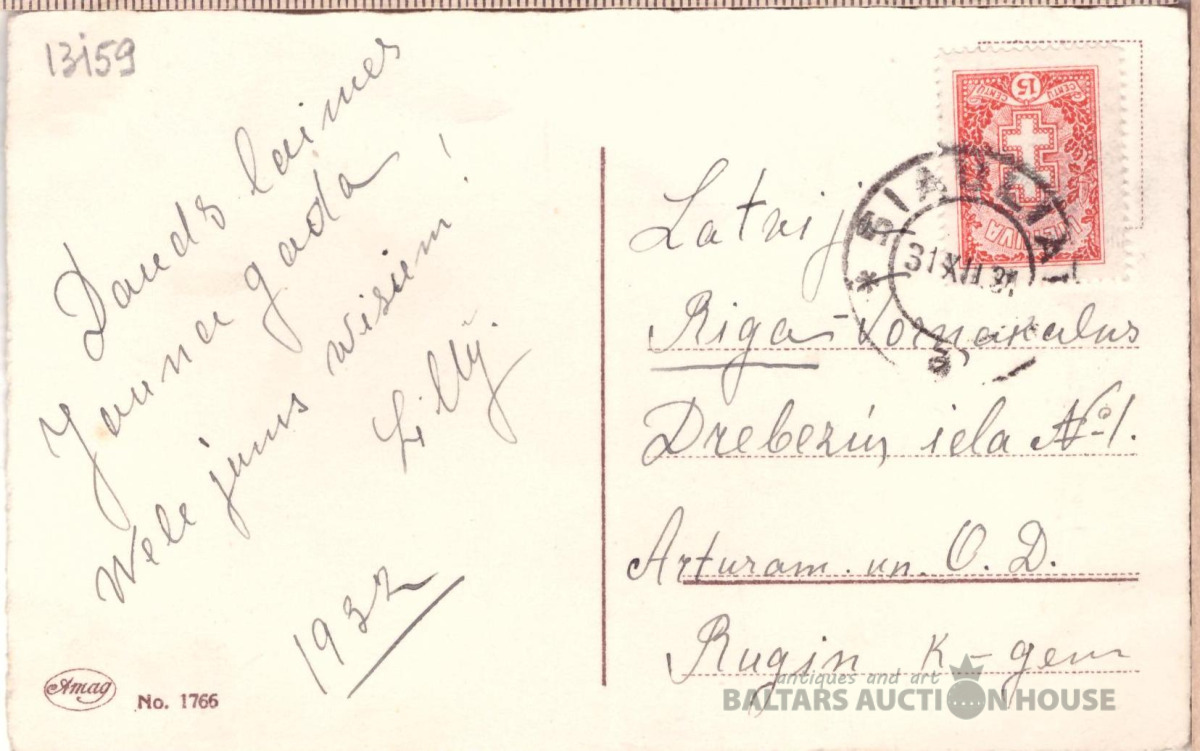 13159
Daudz laimes
Jauna gada
Wēle jums wisiem!
Lilly.
1932
Amag
No. 1766
15
CENTŲ
CENTŲ
LIETUVA
ŠIAULIAI
31 XII 31
Latvij
Riga-Tornakalns
Drebezin iela № 1.
Arturam. un. O. D.
Rugin k-gem
antiques and art
BALTARS AUCTION HOUSE